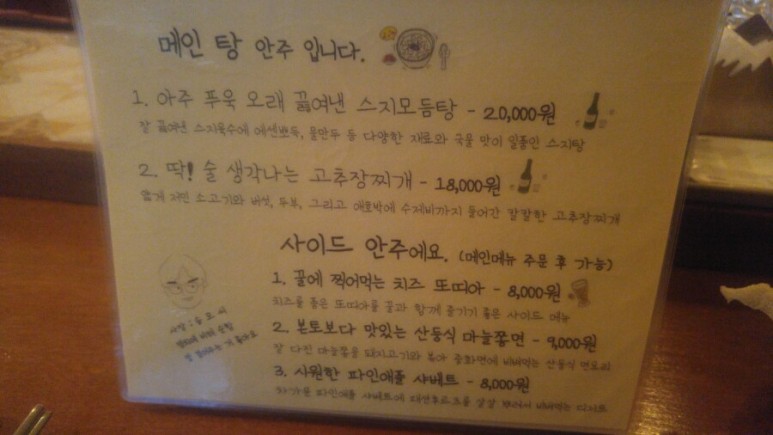 메인 탕 안주 입니다.
1. 아주 푸욱 오래 끓여낸 스지모듬탕 - 20,000원
잘 끓여낸 스지육수에 에센뽀득, 물만두 등 다양한 재료와 국물 맛이 일품인 스지탕
2. 딱! 술 생각나는 고추장찌개 - 18,000원
얇게 저민 소고기와 버섯, 두부, 그리고 애호박에 수제비까지 들어간 칼칼한 고추장찌개
사이드 안주에요. (메인메뉴 주문 후 가능)
1. 꿀에 찍어먹는 치즈 또띠아 - 8,000원
치즈를 품은 또띠아를 꿀과 함께 즐기기 좋은 사이드 메뉴
2. 본토보다 맛있는 산동식 마늘쫑면 - 9,000원
잘 다진 마늘쫑을 돼지고기와 볶아 중화면에 비벼먹는 산동식 면요리
3. 시원한 파인애플 샤베트 - 8,000원
차가운 파인애플 샤베트에